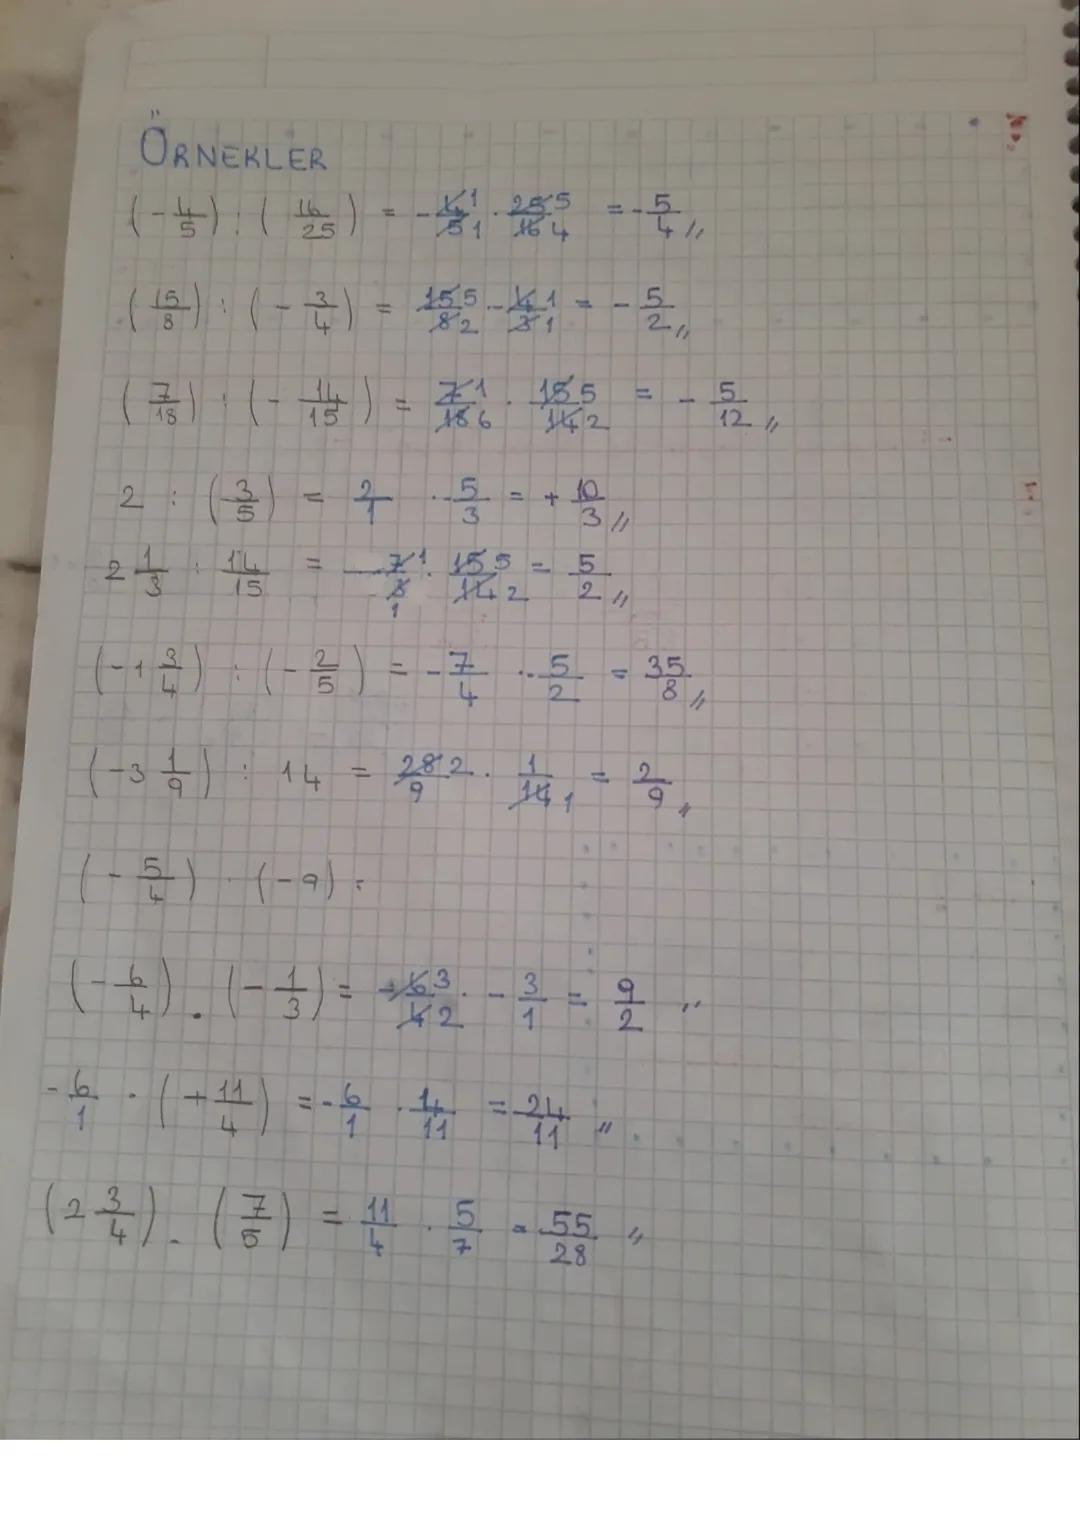 ÖRNEKLER
(-4/5) : (16/25) = -4̶1/5̶1 · 2̶5̶5/1̶6̶4 = -5/4 //
(15/8) : (-3/4) = 1̶5̶5/8̶2 · -4̶1/3̶1 = -5/2 //
(7/18) : (-14/15) = 7̶1/1̶8̶6 · 1̶5̶5/1̶4̶2 = -5/12 //
2 : (3/5) = 2/1 · -5/3 = +10/3 //
2 1/3 : 14/15 = -7̶1/3̶1 · 1̶5̶5/1̶4̶2 = 5/2 //
(-1 3/4) : (-2/5) = -7/4 · -5/2 = 35/8 //
(-3 1/9) : 14 = 2̶8̶2/9 · 1/1̶4̶1 = 2/9 //
(-5/4) · (-9) =
(-6/4) · (-1/3) = -6̶3/4̶2 · -3/1 = 9/2 //
-6/1 · (+11/4) = -6/1 · 4/11 = 24/11 //
(2 3/4) · (7/5) = 11/4 · 5/7 = 55/28 //